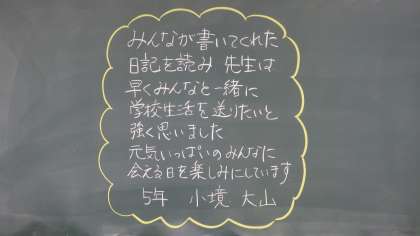 みんなが書いてくれた
日記を読み 先生は
早くみんなと一緒に
学校生活を送りたいと
強く思いました
元気いっぱいのみんなに
会える日を楽しみにしています
5年 小境 大山